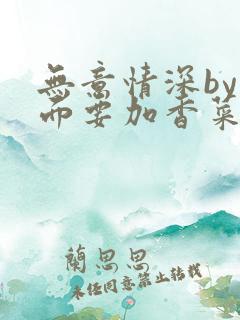 無意情深by
而要加香菜
蘭思思
未经同意禁止转载